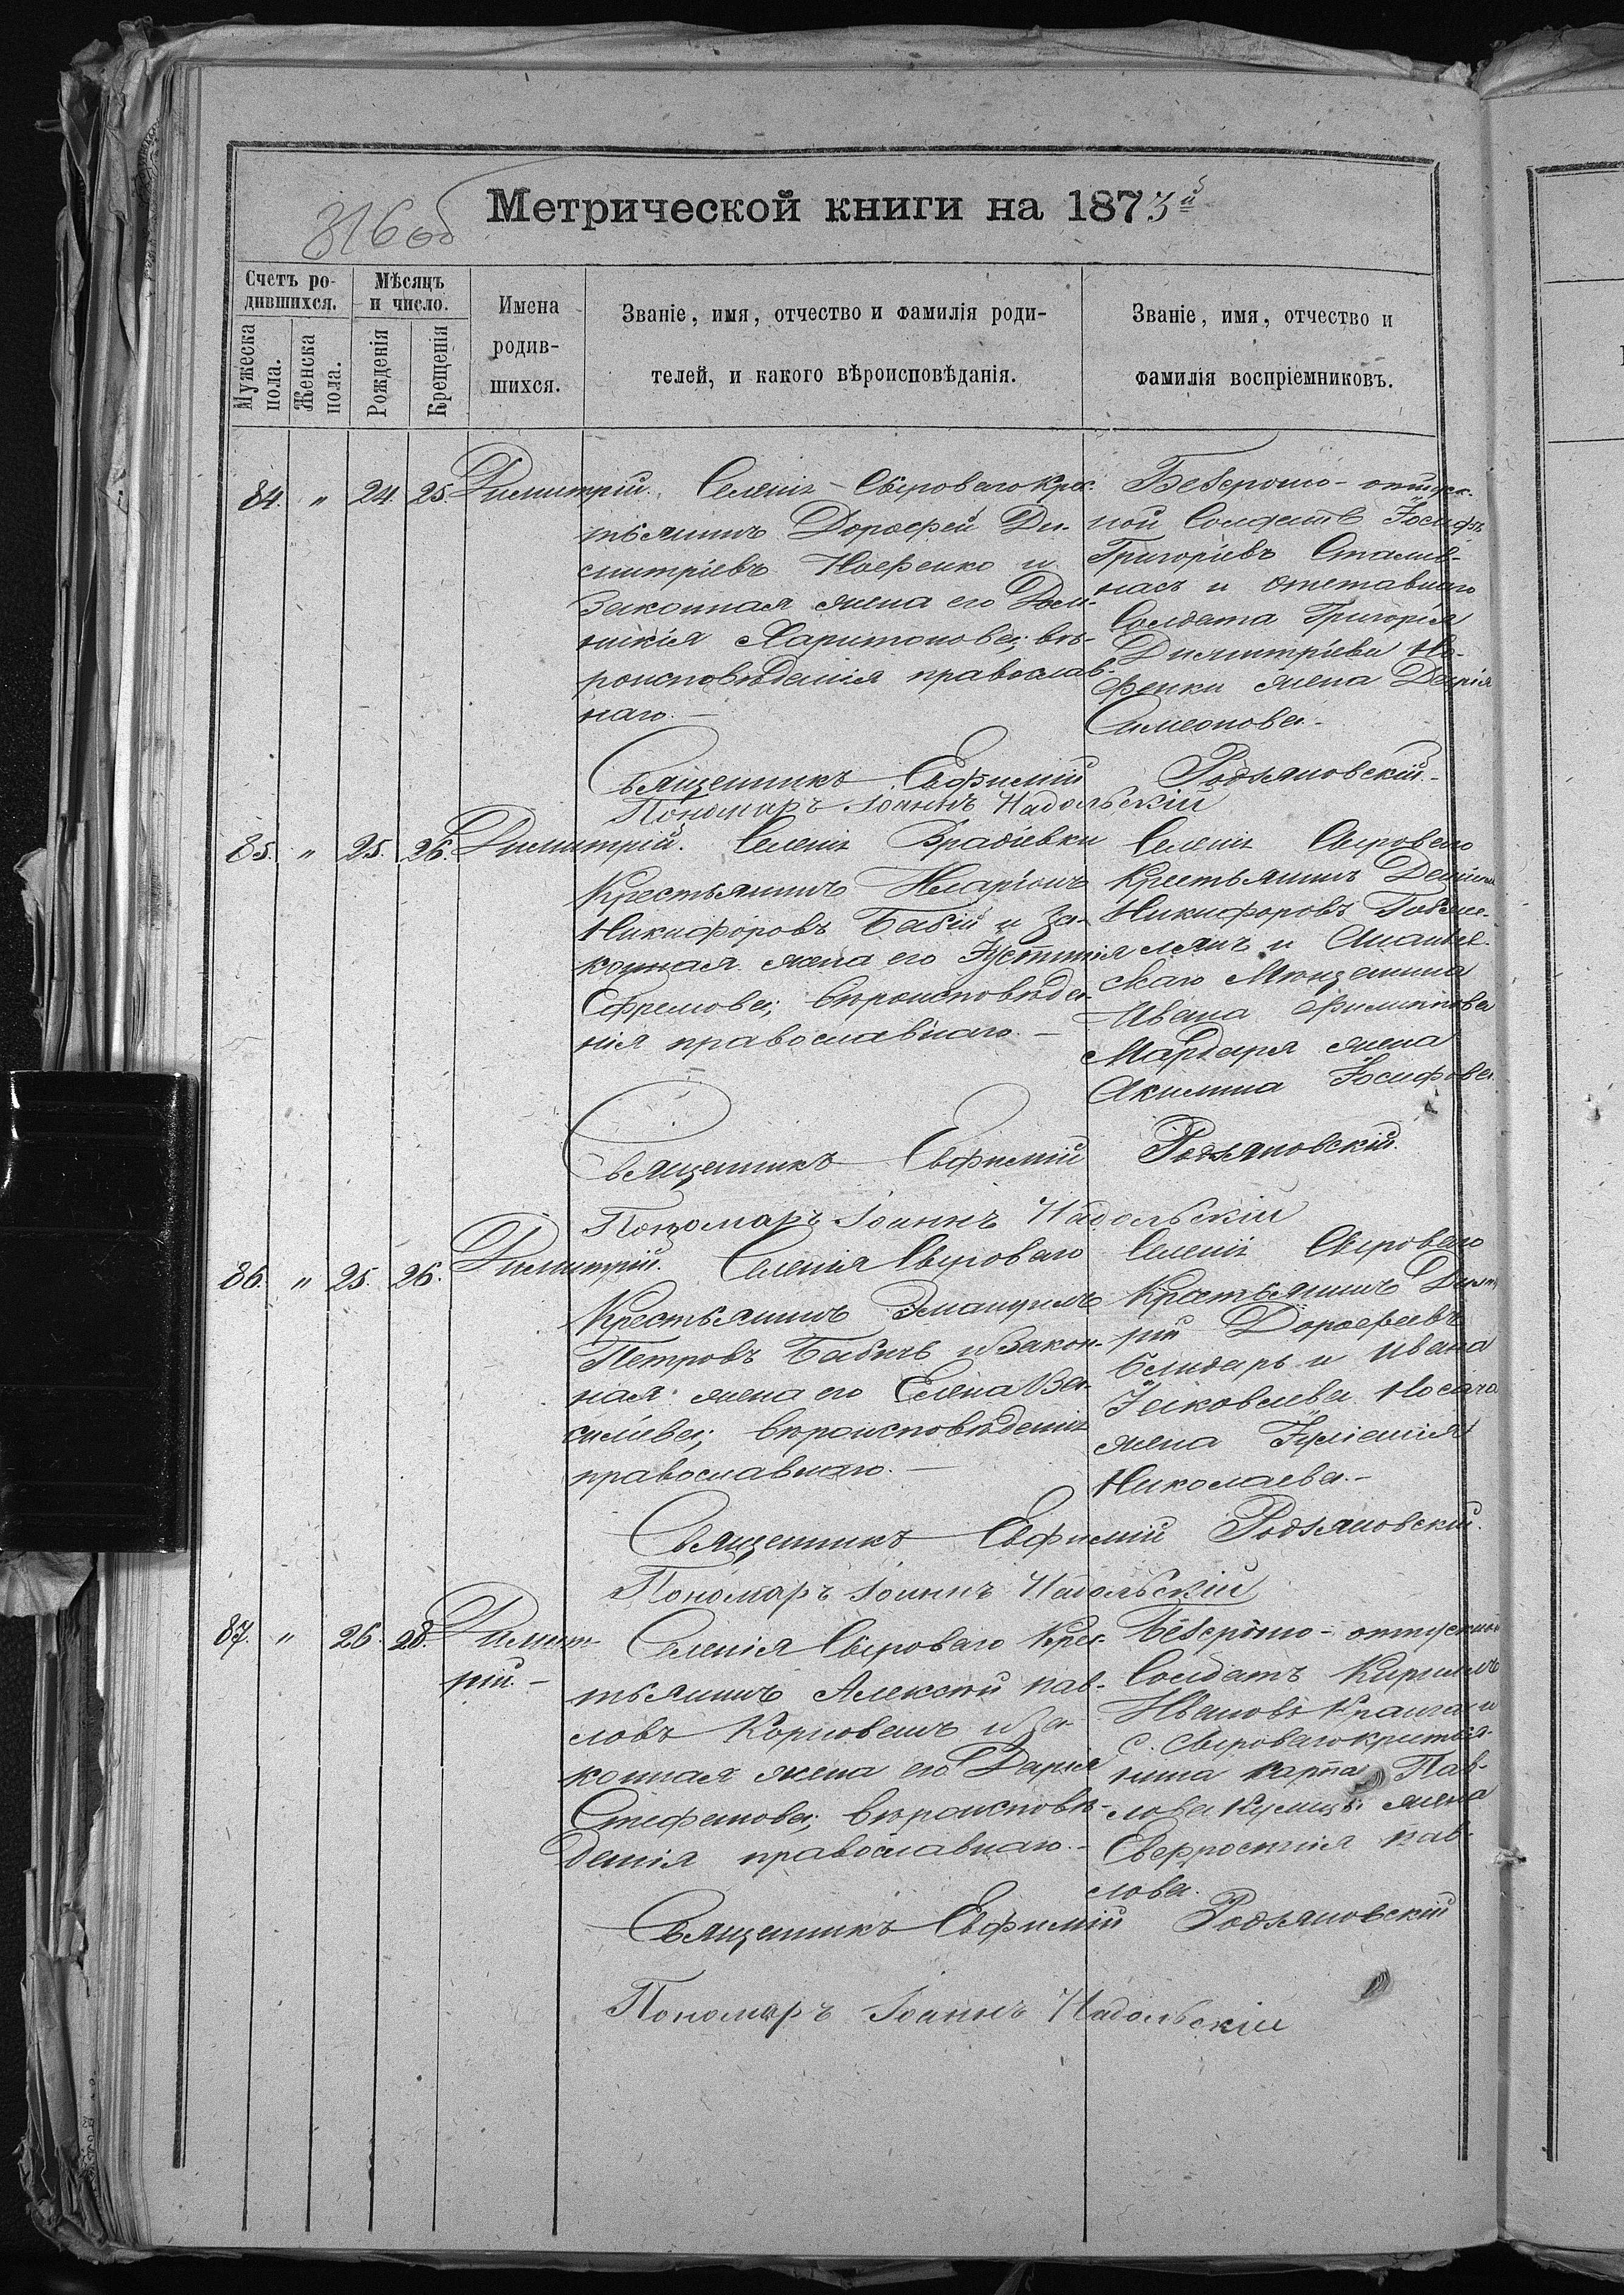 316 об
Метрической книги на 1873й
Счетъ ро-
дившихся.
Мѣсяцъ
и число.
Мужеска
пола.
Женска
пола.
Рожденія
Крещенія
Имена
родив-
шихся.
Званіе, имя, отчество и фамилія роди-
телей, и какого вѣроисповѣданія.
Званіе, имя, отчество и
фамилія воспріемниковъ.
84. " 24. 25. Димитрій. Селенія Сыроваго Крес-
тьянинъ Дорофей Ди-
митріевъ и
Законная жена его Дом-
никія Харитонова; вѣ-
роисповѣданія православ-
наго. —
Безсрочно-отпуск-
ной Солдатъ Іосифъ
Григоріевъ
и отставнаго
Солдата Григорія
Димитріева
жена Дарія
Симеонова. -
Священникъ Евфимій Родзяновскій. -
Пономаръ Іоаннъ Надольскій
85. " 25. 26. Димитрій. Селенія Врадіевки
Крестьянинъ Иларіонъ
Никифоровъ Бабій и За-
конная жена его Іустинія
Ефремова; вѣроисповѣда-
нія православнаго. —
Селенія Сыроваго
Крестьянинъ
Никифоровъ
и Ананьев-
скаго Мѣщанина
Ивана Филиппова
Мардаря жена
Акилина Іосифова
Священникъ Евфимій Родзяновскій.
Пономаръ Іоаннъ Надольскій
86. " 25. 26. Димитрій. Селенія Сыроваго
Крестьянинъ Эмануилъ
Петровъ Бабичъ и Закон-
ная жена его Елена Ва-
силіева; вѣроисповѣданія
православнаго. —
Селенія Сыроваго
Крестьянинъ Димит-
рій Дорофеевъ
Блидарь и Ивана
Іаковлева Носача
жена Іуліанія
Николаева. -
Священникъ Евфимій Родзяновскій.
Пономаръ Іоаннъ Надольскій
87. " 26. 28. Димит-
рій. -
Селенія Сыроваго Крес-
тьянинъ Алексій Пав-
ловъ Корнованъ и За-
конная жена его Дарія
Стефанова; вѣроисповѣ-
данія православнаго. -
Безсрочно-отпускной
Солдатъ Кириллъ
Ивановъ и
с. Сыроваго крестья-
нина Карпа Пав-
лова жена
Евфросинія Пав-
лова.
Священникъ Евфимій Родзяновскій
Пономаръ Іоаннъ Надольскій